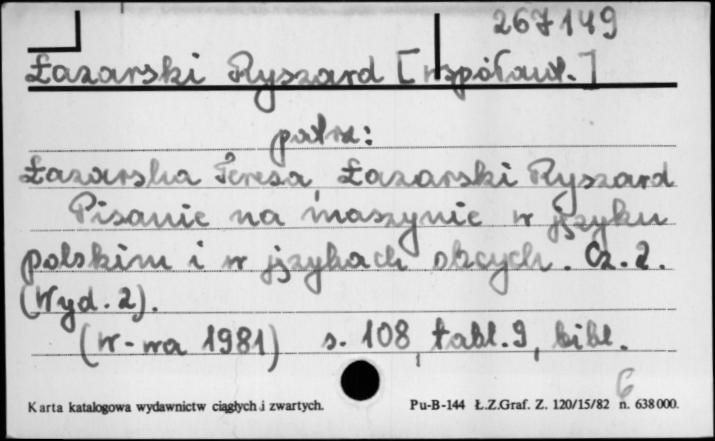 267149
Łazarski Ryszard [współaut.]
patrz:
Łazarska Teresa, Łazarski Ryszard
Pisanie na maszynie w języku
polskim i w językach obcych. Cz. 2.
(Wyd. 2).
(W-wa 1981) s. 108, tabl. 9, bibl.
6
Karta katalogowa wydawnictw ciągłych i zwartych. Pu-B-144 Ł.Z.Graf. Z. 120/15/82 n. 638000.